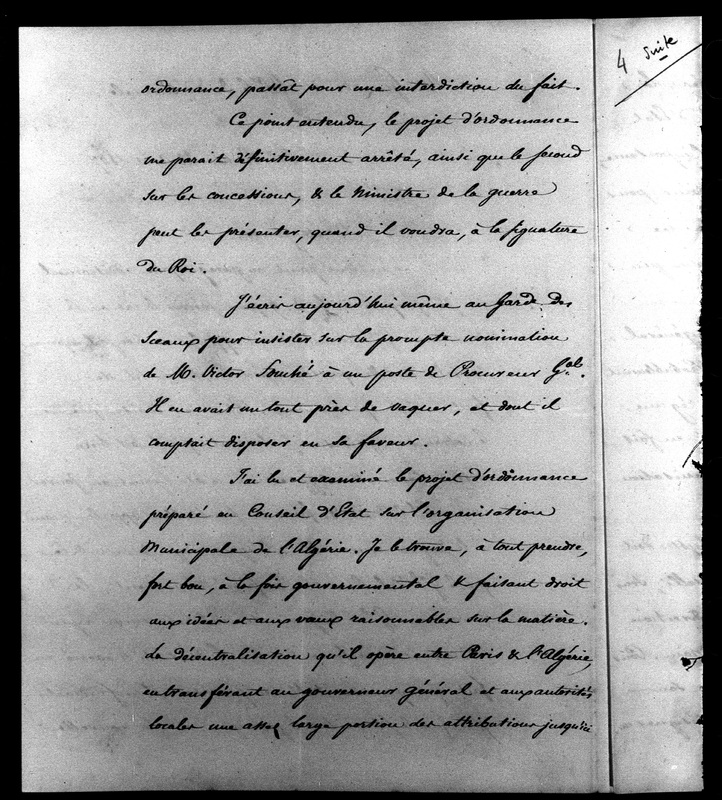 4 suite
ordonnance, passât pour une interdiction du fait.
Ce point entendu, le projet d'ordonnance
me parait définitivement arrêté, ainsi que le second
sur les concessions, & le Ministre de la guerre
peut les présenter, quand il voudra, à la signature
du Roi.
J'écris aujourd'hui même au Garde des
Sceaux pour insister sur la prompte nomination
de M. Victor Souché à un poste de Procureur Gal.
Il en avait un tout près de vaquer, et dont il
comptait disposer en sa faveur.
J'ai lu et examiné le projet d'ordonnance
préparé en Conseil d'Etat sur l'organisation
Municipale de l'Algérie. Je le trouve, à tout prendre,
fort bon, à la fois gouvernemental & faisant droit
aux idées et aux vœux raisonnables sur la matière.
La décentralisation qu'il opère entre Paris & l'Algérie,
en transférant au gouverneur général et aux autorités
locales une assez large portion des attributions jusqu'ici